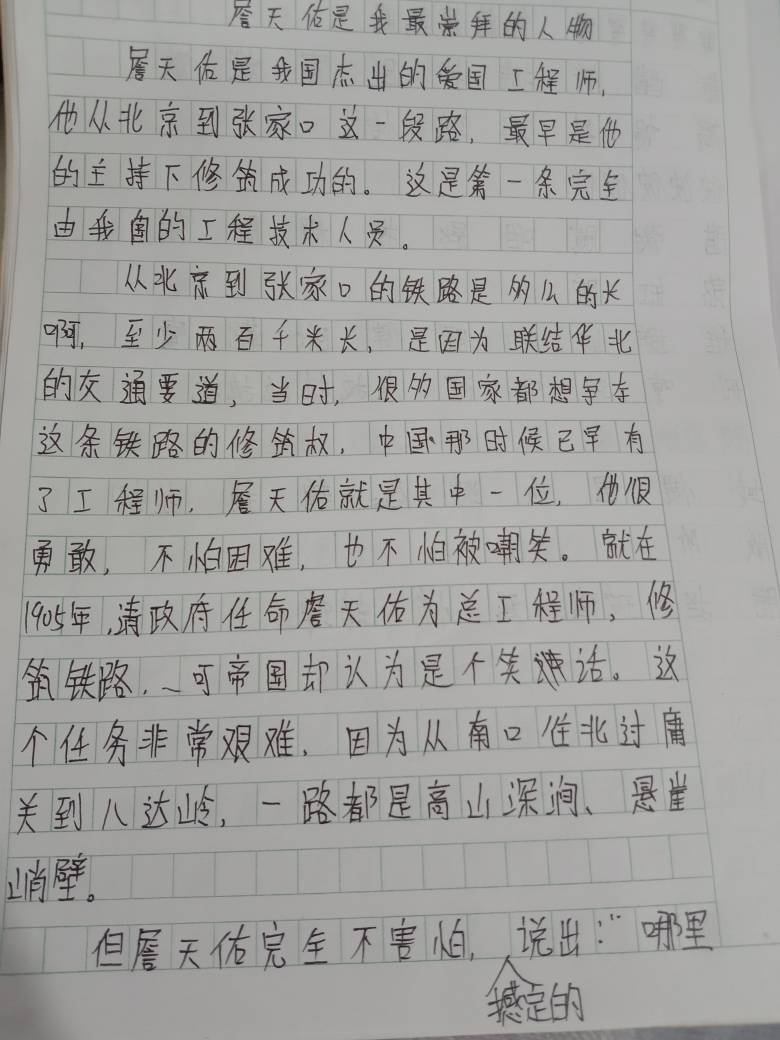 詹天佑是我最崇拜的人物
詹天佑是我国杰出的爱国工程师,
他从北京到张家口这一段路,最早是他
的主持下修筑成功的。这是第一条完全
由我国的工程技术人员。
从北京到张家口的铁路是多么的长
啊,至少两百千米长,是因为联结华北
的交通要道,当时,很多国家都想争夺
这条铁路的修筑权,中国那时候已早有
了工程师,詹天佑就是其中一位,他很
勇敢,不怕困难,也不怕被嘲笑。就在
1905年,清政府任命詹天佑为总工程师,修
筑铁路,可帝国却认为是个笑话。这
个任务非常艰难,因为从南口往北过庸
关到八达岭,一路都是高山深涧、悬崖
峭壁。
但詹天佑完全不害怕,说出:“哪里
撼定的